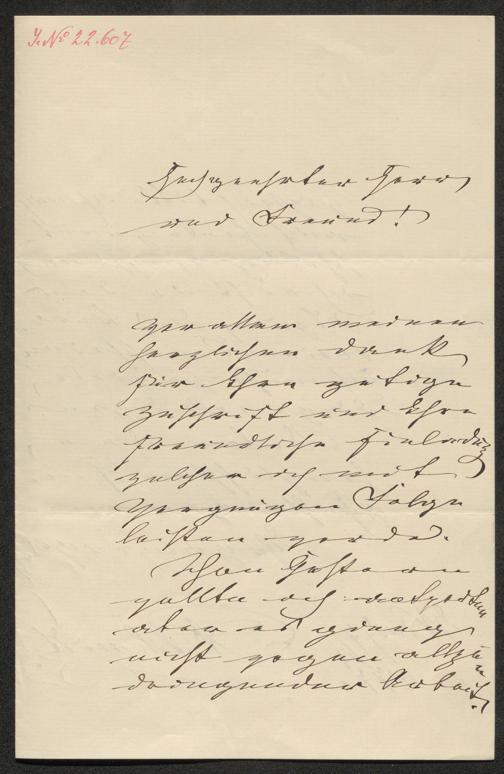 J. No 22.607
Hochgeehrter Herr
und Freund!
Vor allem meinen
herzlichen Dank
für Ihre gütige
Zuschrift und Ihre
freundliche Einladung
welcher ich mit
Vergnügen Folge
leisten werde.
Schon Gestern
wollte ich antworten
aber es gieng
nicht wegen allzu
dringender Arbeit!